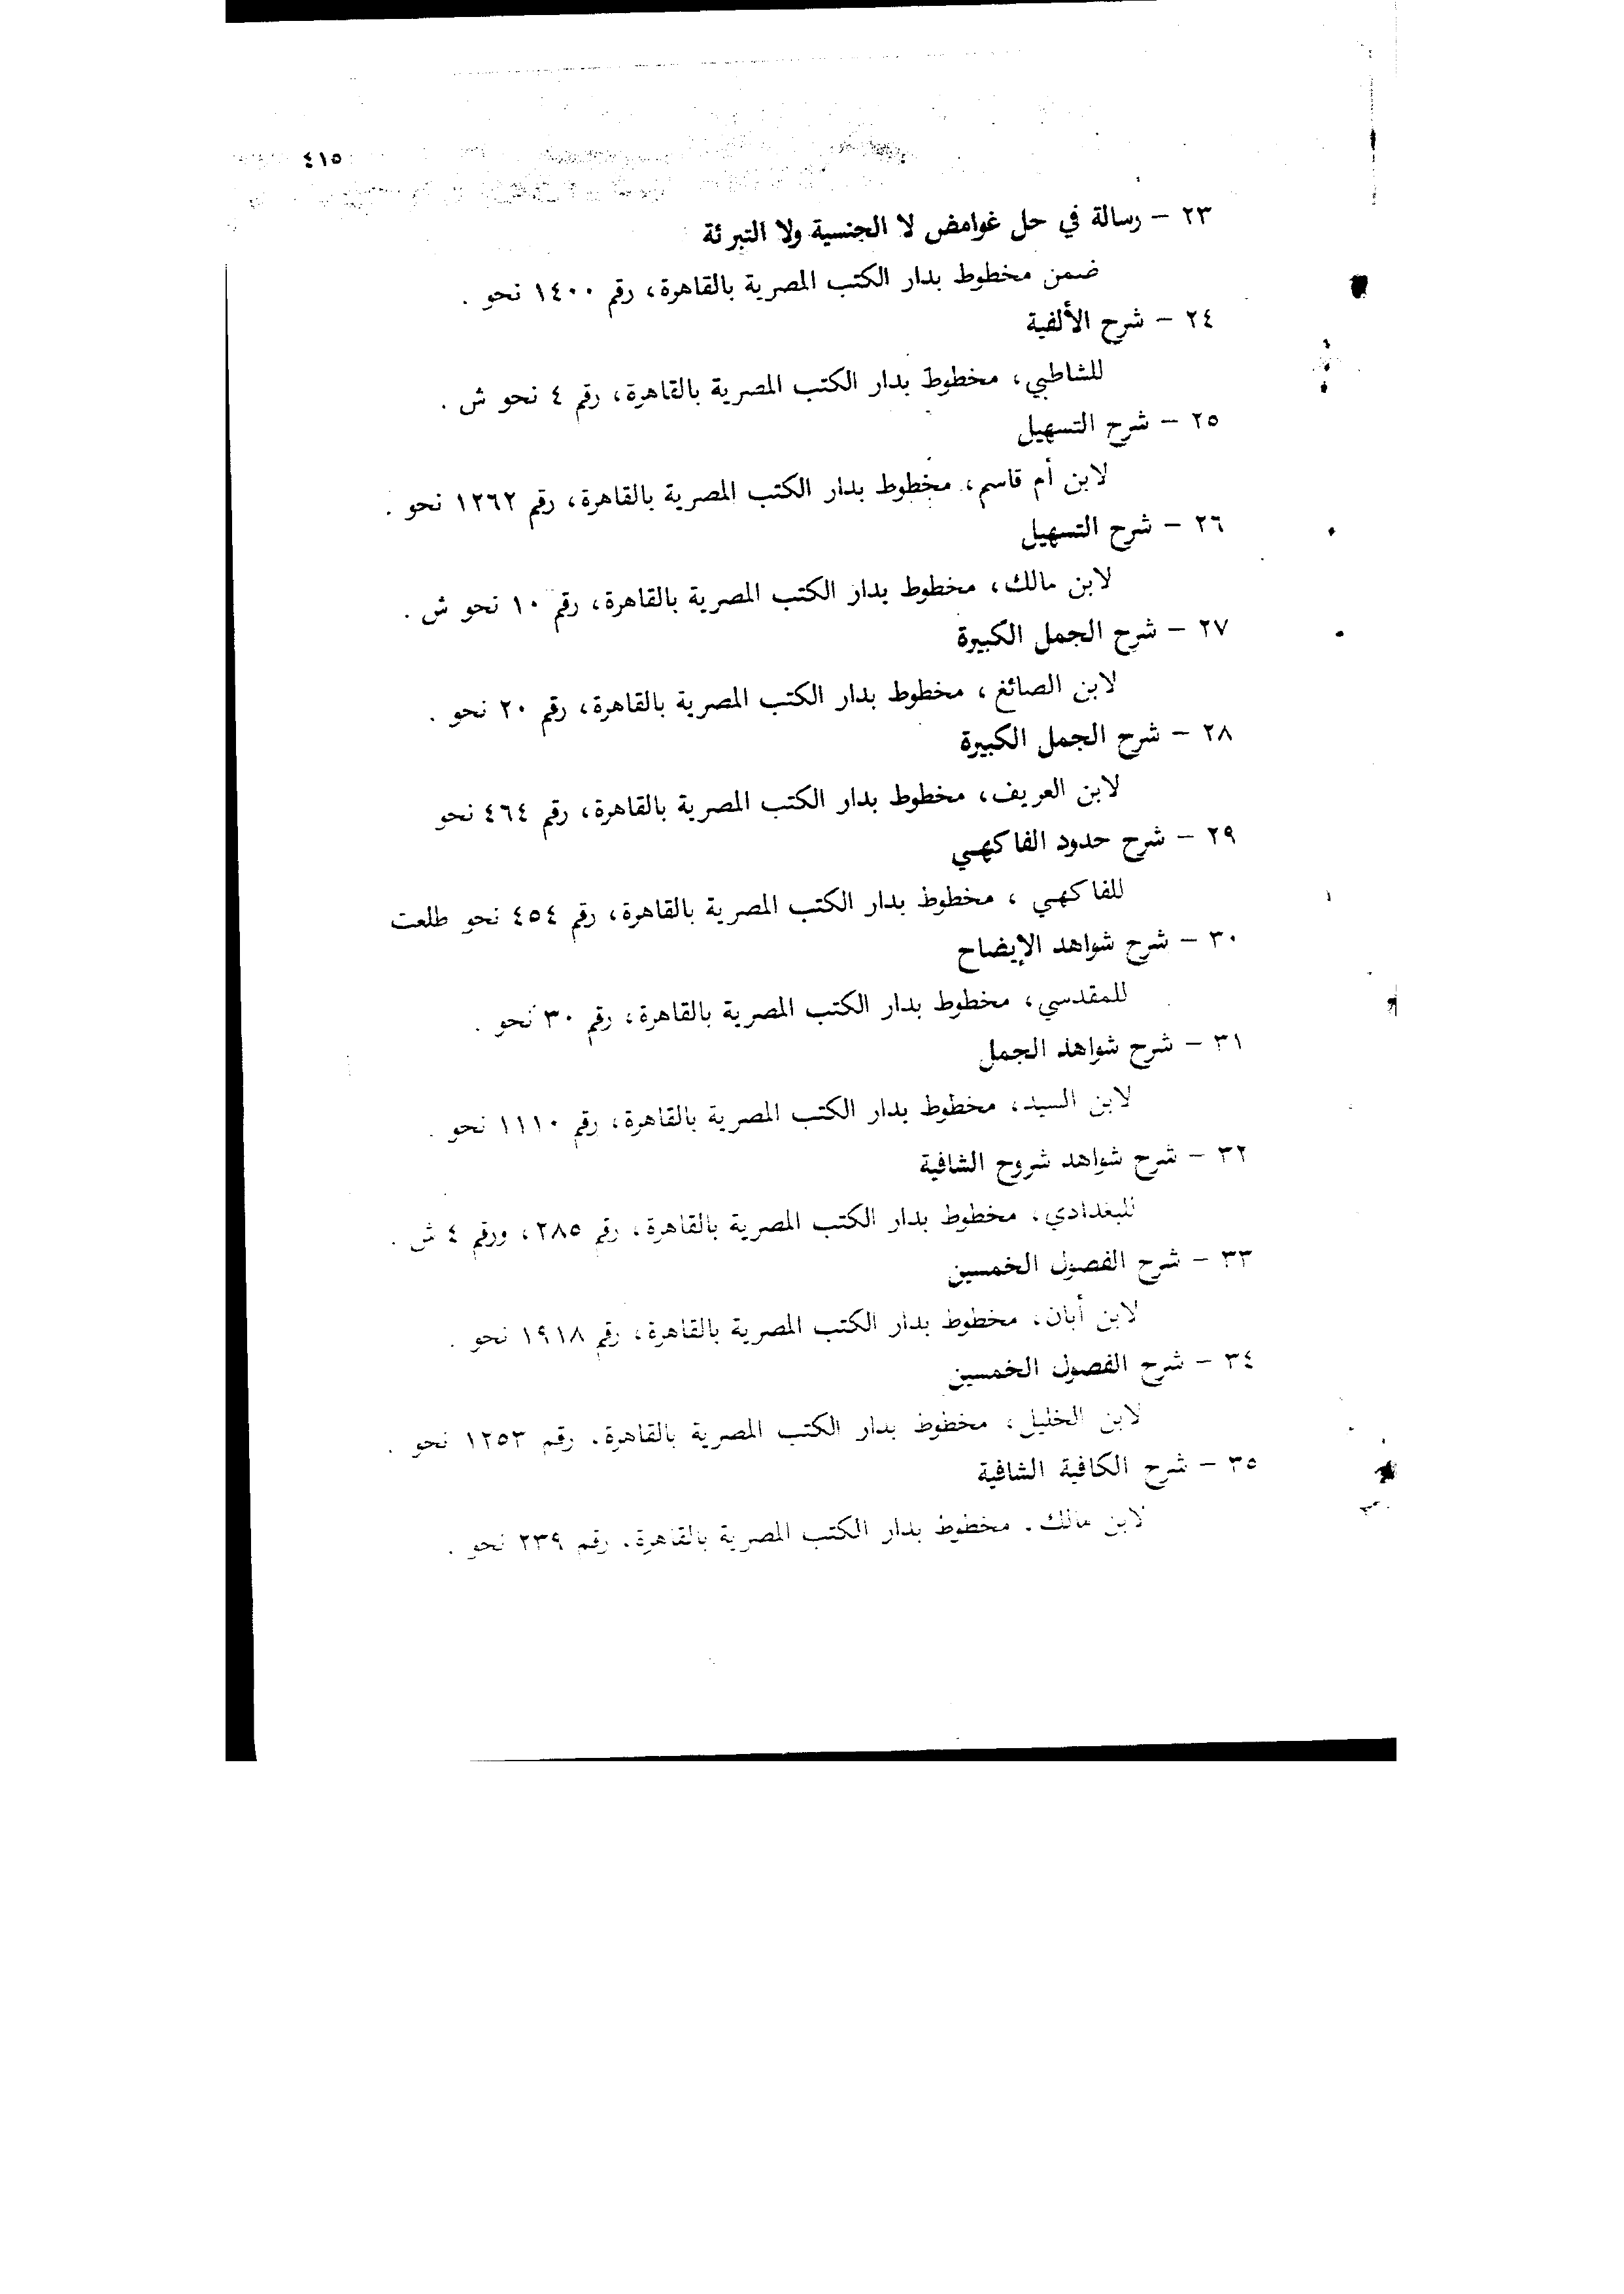 ٤١٥
٢٣ – رسالة في حل غوامض لا الجنسية ولا التبرئة
ضمن مخطوط بدار الكتب المصرية بالقاهرة، رقم ١٤٠٠ نحو .
٢٤ – شرح الألفية
للشاطبي، مخطوط بدار الكتب المصرية بالقاهرة، رقم ٤ نحو ش .
٢٥ – شرح التسهيل
لابن أم قاسم، مخطوط بدار الكتب المصرية بالقاهرة، رقم ١٢٦٢ نحو .
٢٦ – شرح التسهيل
لابن مالك، مخطوط بدار الكتب المصرية بالقاهرة، رقم ١٠ نحو ش .
٢٧ – شرح الجمل الكبيرة
لابن الصائغ، مخطوط بدار الكتب المصرية بالقاهرة، رقم ٢٠ نحو .
٢٨ – شرح الجمل الكبيرة
لابن العريف، مخطوط بدار الكتب المصرية بالقاهرة، رقم ٤٦٤ نحو
٢٩ – شرح حدود الفاكهي
للفاكهي ، مخطوط بدار الكتب المصرية بالقاهرة، رقم ٤٥٤ نحو طلعت
٣٠ – شرح شواهد الإيضاح
للمقدسي، مخطوط بدار الكتب المصرية بالقاهرة، رقم ٣٠ نحو .
٣١ – شرح شواهد الجمل
لابن السيد، مخطوط بدار الكتب المصرية بالقاهرة، رقم ١١١٠ نحو .
٣٢ – شرح شواهد شروح الشافية
للبغدادي، مخطوط بدار الكتب المصرية بالقاهرة، رقم ٢٨٥، ورقم ٤ ش .
٣٣ – شرح الفصول الخمسين
لابن أبان، مخطوط بدار الكتب المصرية بالقاهرة، رقم ١٩١٨ نحو .
٣٤ – شرح الفصول الخمسين
لابن الخليل، مخطوط بدار الكتب المصرية بالقاهرة، رقم ١٢٥٣ نحو .
٣٥ – شرح الكافية الشافية
لابن مالك، مخطوط بدار الكتب المصرية بالقاهرة، رقم ٢٣٩ نحو .